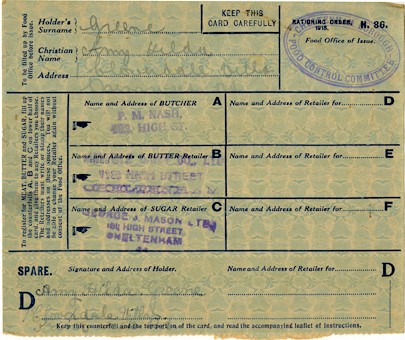 To be filled up by Food Office before issue.
Holder's Surname Greene
Christian Name Amy Hilda
Address
KEEP THIS CARD CAREFULLY
RATIONING ORDER, 1918.
N. 86.
Food Office of Issue.
FOOD CONTROL COMMITTEE
To register for MEAT, BUTTER and SUGAR, fill up the counterfoils A, B and C on lower half of card, and give them to any Retailers you choose. The Retailers must write or stamp their names and addresses on these spaces. You will not be able to change your Retailer again without consent of the Food Office.
Name and Address of BUTCHER A
P. M. NASH,
HIGH ST.
Name and Address of BUTTER Retailer B
HIGH STREET
Name and Address of SUGAR Retailer C
GEORGE J. MASON LTD
HIGH STREET,
CHELTENHAM
Name and Address of Retailer for D
Name and Address of Retailer for E
Name and Address of Retailer for F
SPARE. Signature and Address of Holder.
Name and Address of Retailer for D
D Amy Hilda Greene
Keep this counterfoil and the top portion of the card, and read the accompanying leaflet of instructions.